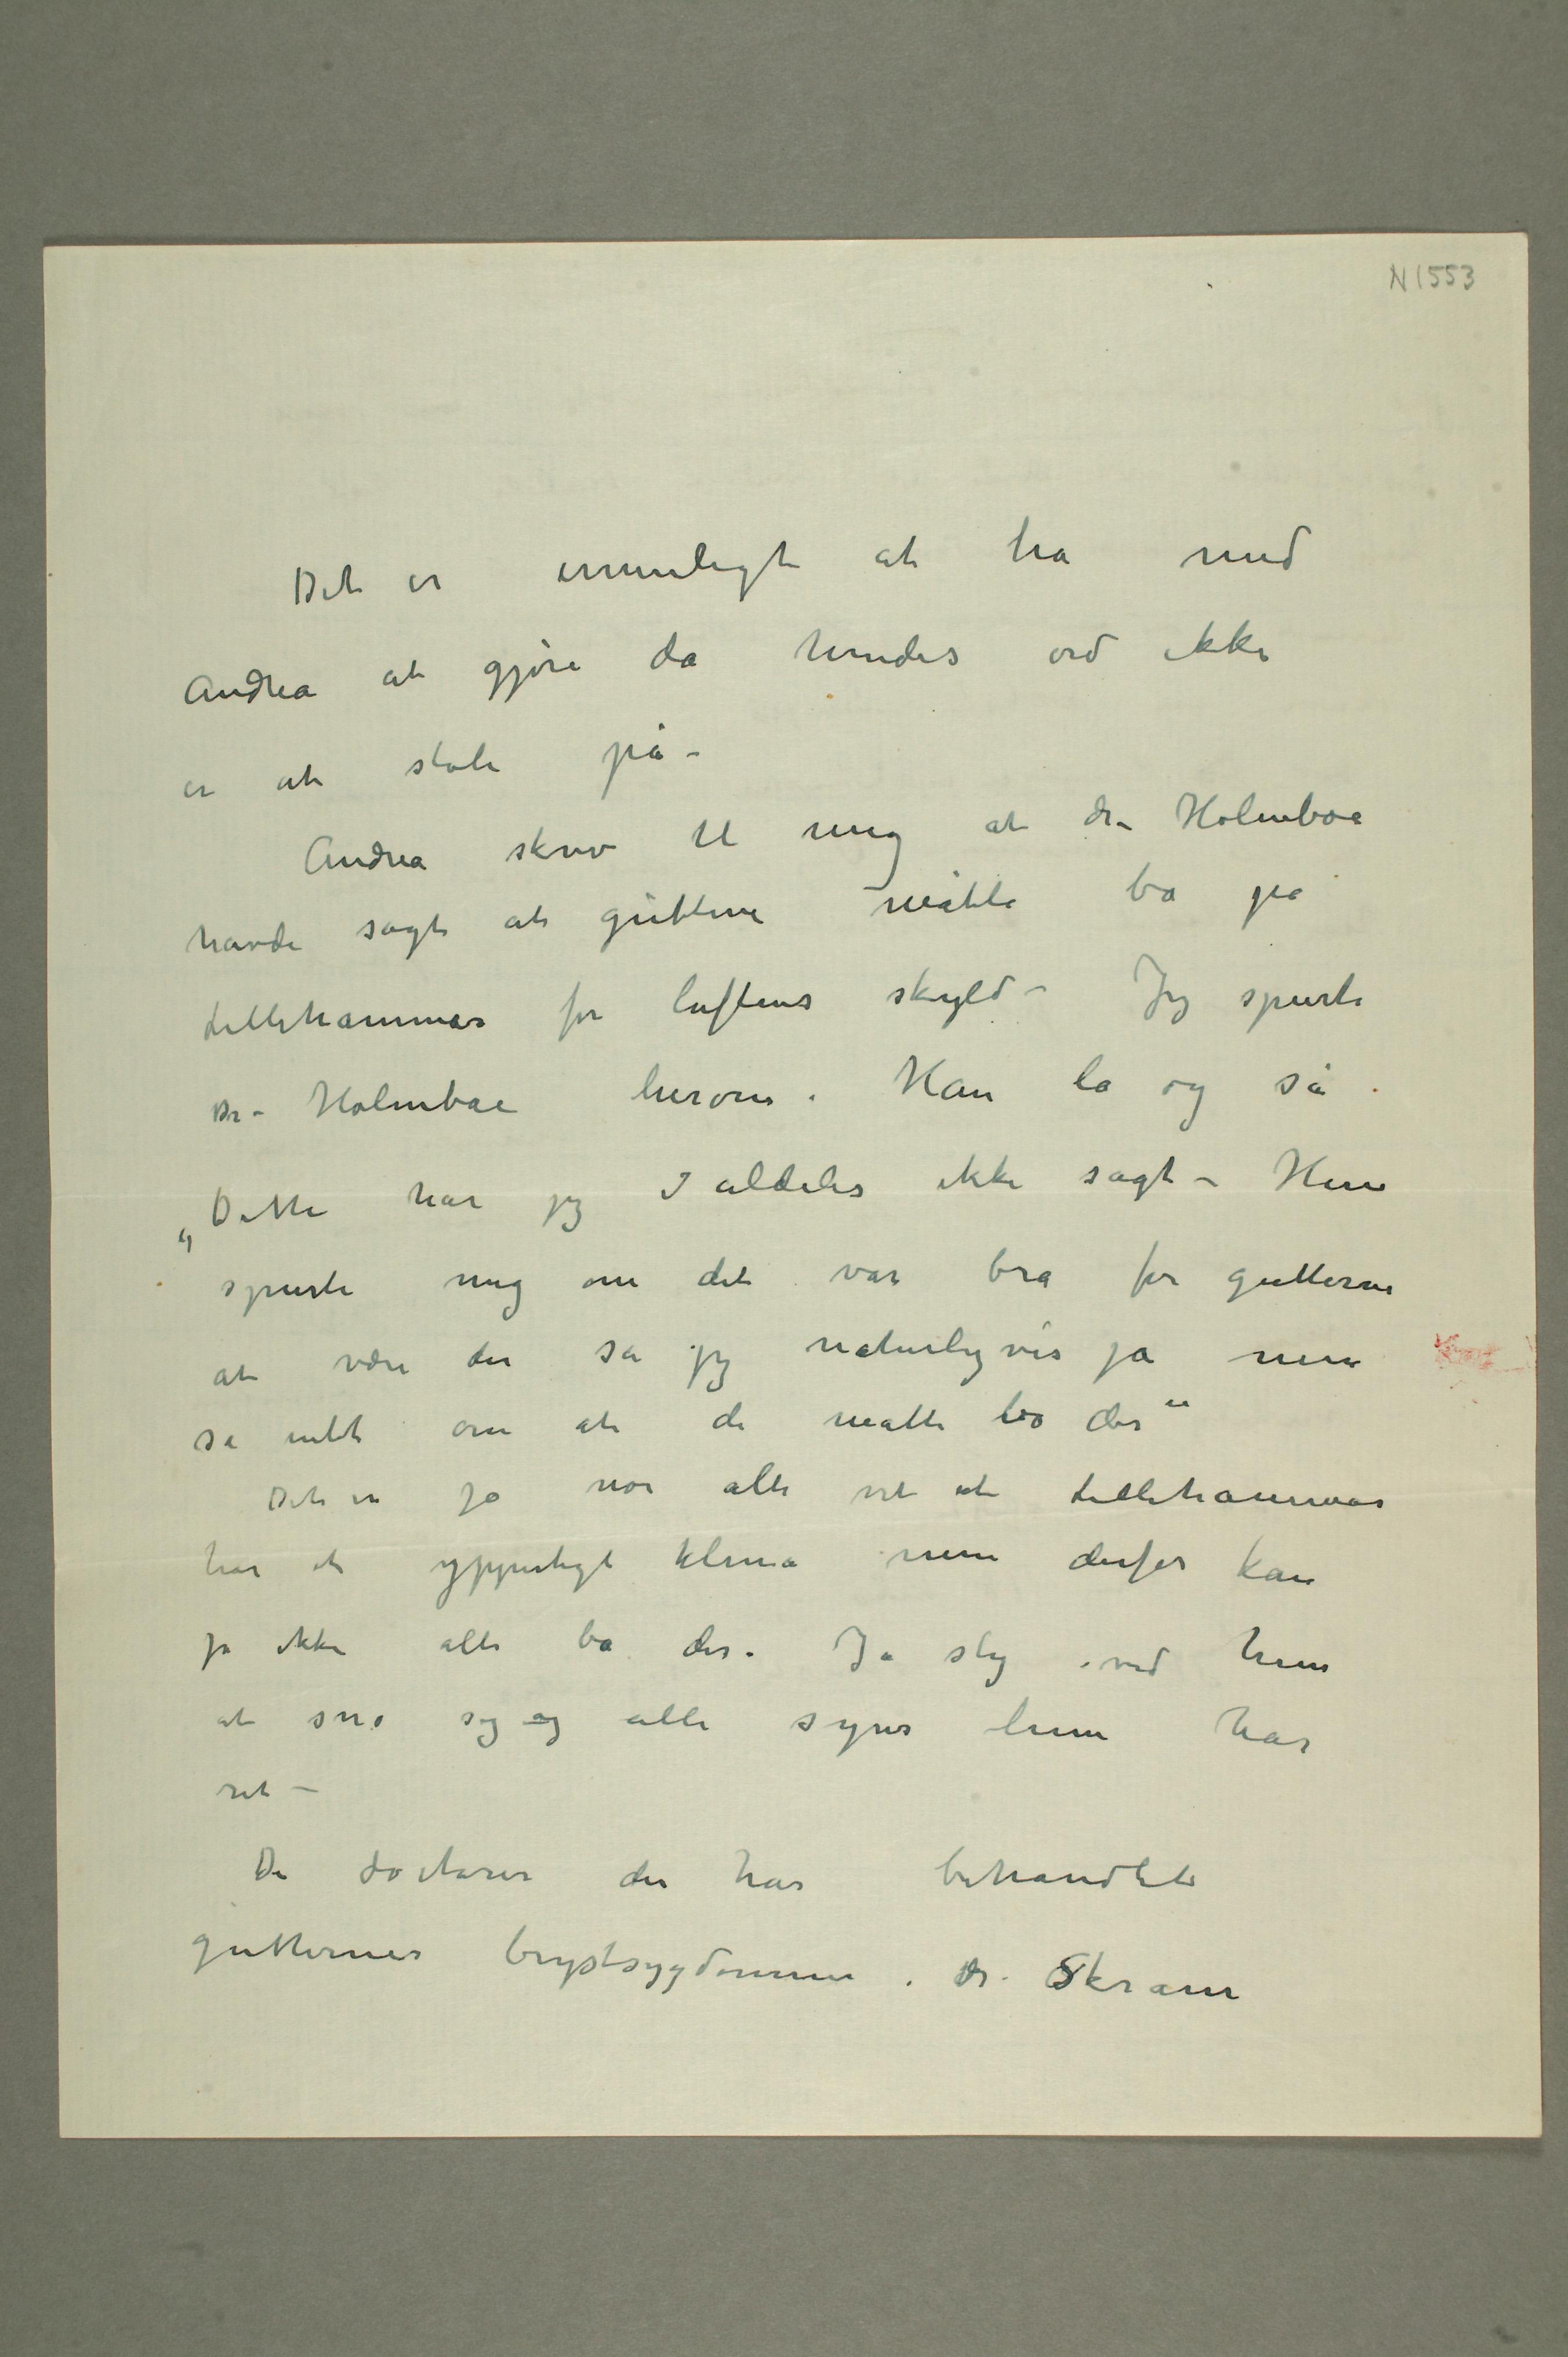 N 1553
Det er umuligt at ha med
Andrea at gjøre da hendes ord ikke
er at stole på –
Andrea skrev til mig at dr – Holmboe
havde sagt at guttene måtte bo på
Lillehammer for luftens skyld – Jeg spurte
Dr – Holmboe herom. Han lo og sa
„Dette har jeg aldeles ikke sagt – Hun
spurte mig om det var bra for gutterne
at være der sa jeg naturligvis ja men
sa intet om at de matte bo der“
Det er jo noe alle vet at Lillehammer
har et ypperligt klima men derfor kan
jo ikke alle bo der. Ja slig ved hun
at sno sig og alle synes hun har
ret –
De doctorer der har behandlet
gutternes brystsygdommer. dr. Skram